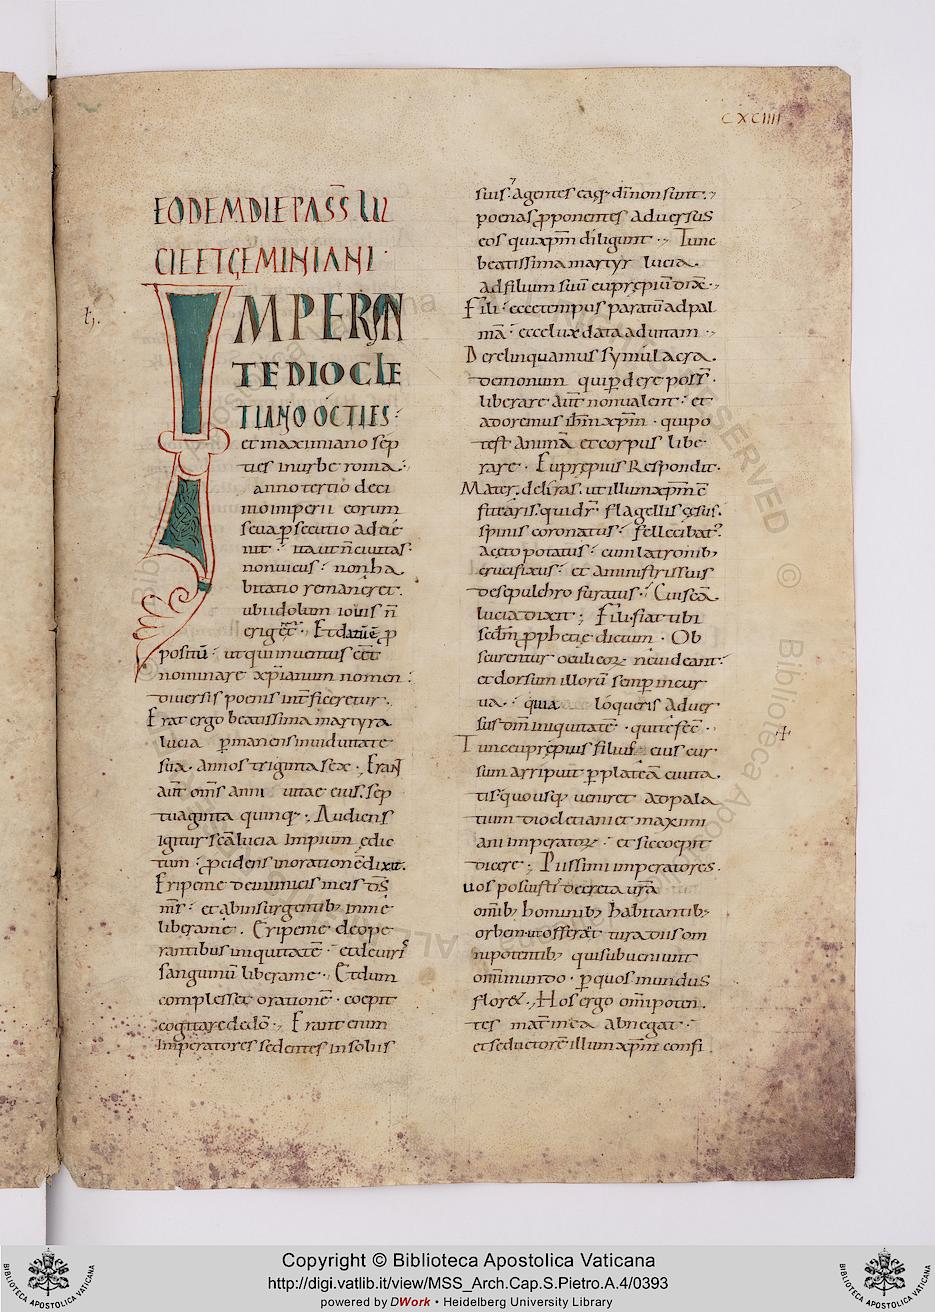 CXCIIII
EODEM DIE PASS̄ LU
CIE ET GEMINIANI·
IMPERAN
TE DIOCLE
TIANO OCTIES·
et maximiano sep
ties inurbe roma·
anno tertio deci
mo imperii eorum
seua p̱secutio adcre
uit· ita ut n̄ ciuitas·
non uicus· non ha
bitatio remaneret·
ubi idolum iouis n̄
p
positū· ut qui inuentus eēt
nominare xp̄ianum nomen·
diuersis poenis int̄ficeretur·
Erat ergo beatissima martyra
lucia p̱manens in uiduitate
sua· annos triginta sex· Erant
aūt om̄s anni uitae eius· sep
tuaginta quinq;· Audiens
igitur sc̄a lucia impium edic
tum· p̱cidens in orationē dixit·
Eripe me de inimicis meis d̄s
m̄s· et ab insurgentib; in me
libera me· Eripe me de ope
rantibus iniquitatē· et de uiris
sanguinū libera me· Et dum
complesset orationē· coepit
cogitare de dō· Erant enim
imperatores sedentes in soliis
suis· agentes eaq; dīnon sunt·
poenas p̱ponentes aduersus
eos qui xp̄m diligunt· Tunc
beatissima martyr lucia·
ad filium suū euprepiū dix̄·
Fili· ecce tempus paratū ad pal
mā· ecce lux data ad uitam·
Derelinquamus symulacra·
demonum qui p̱dere poss̄·
liberare aūt non ualent· et
adoremus ih̄m xp̄m· qui po
test animā et corpus libe
rare· Euprepius Respondit·
Mater· deliras· ut illum xp̄m ē
fitearis· quid r̄ flagellis cesus·
spinis coronatus· felle cibat;
aceto potatus· cum latronib;
crucifixus· et a ministris suis
de sepulchro furatus· Cui sc̄a
lucia dixit; Fili· fiat tibi
secdm̄ p̱phetie dictum· Ob
scurentur oculi eoꝝ ne uideant·
et dorsum illorū semp̱ incur
ua· quia loqueris aduer
sus dm̄ iniquitatē· qui te fēc·
Tunc euprepius filius eius cur
sum arripuit p̱ plateā ciuita
tis· quo usq; ueniret ad pala
tium diocletiani et maximi
ani imperatoꝝ· et sic coepit
dicere; Piissimi imperatores·
uos posuisti decreta ur̄a
om̄ib; hominib; habitantib;
orbem· ut offerāt tura diis om
nipotentib; qui subueniunt
omī mundo· p̱ quos mundus
floret· Hos ergo omīpoten
tes mat̄ mea abnegat·
et seductorē illum xp̄m confi
Copyright © Biblioteca Apostolica Vaticana
http://digi.vatlib.it/view/MSS_Arch.Cap.S.Pietro.A.4/0393
powered by DWork • Heidelberg University Library
BIBLIOTECA APOSTOLICA VATICANA
BIBLIOTECA APOSTOLICA VATICANA